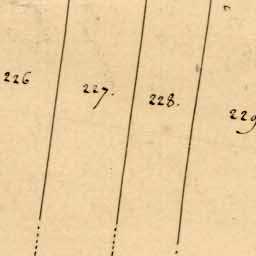 226
227.
228.
229